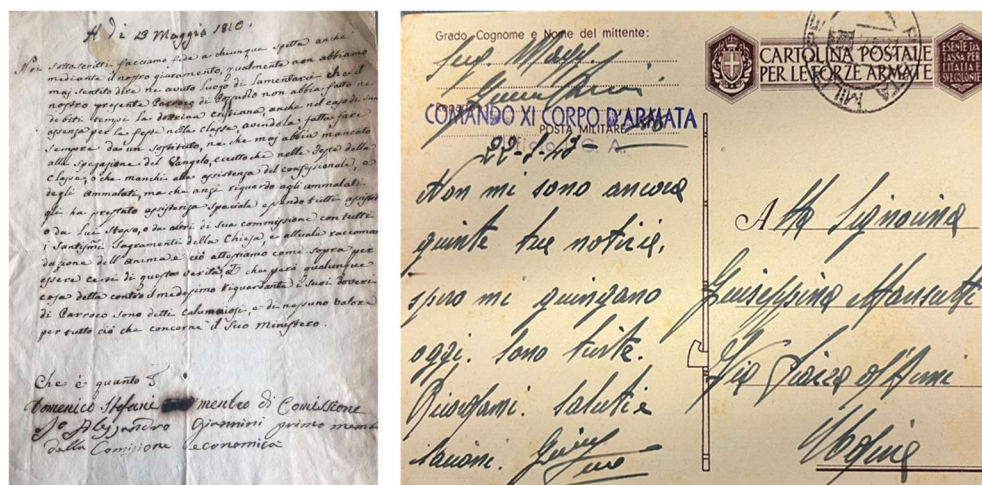 A di 23 Maggio 1810.
Noi sottoscritti facciamo fede a chiunque spetta anche
mediante il nostro giuramento, qualmente non abbiamo
maj sentito dire ne avuto luogo di lamentarci che il
nostro presente Parroco di non abbia fatto ne
debiti tempi la dottrina cristiana, anche nel caso di sua
assenza per le feste nella classe, avendola fatta fare
sempre da un sostituto, ne che maj abbia mancato
alla spiegazione del Vangelo, eccetto che nelle feste della
classe, o che manchi alla assistenza del confessionale, o
degli ammalati, ma che anzi riguardo agli ammalati
gli ha prestato assistenza speciale essendo tutti assistiti
o da lui stesso, o da altri di sua commissione con tutti
i Santissimi Sagramenti della Chiesa, e attuale raccoman
dazione dell'anima e ciò attestiamo come sopra per
essere cersi di questa verità che però qualunque
cosa detta contro il medesimo riguardante i suoi doveri
di Parroco sono detti calunniosi, e di nessuno valore
per tutto ciò che concerne il suo Ministero.
Che è quanto
Domenico Stefani membro di Comissione
Io Alessandro Giannini primo mem
della Comisione economica
Grado, Cognome e Nome del mittente:
COMANDO XI CORPO D'ARMATA
POSTA MILITARE
Non mi sono ancora
giunte tue notizie,
spero mi giungano
oggi. Sono triste.
Ricordami. Saluti e
bacioni.
CARTOLINA POSTALE
PER LE FORZE ARMATE
ESENTE DA
TASSA PER
L'ITALIA E
SUE COLONIE
Alla Signorina
Giuseppina Mansutti
Via Piazza d'Armi
Udine